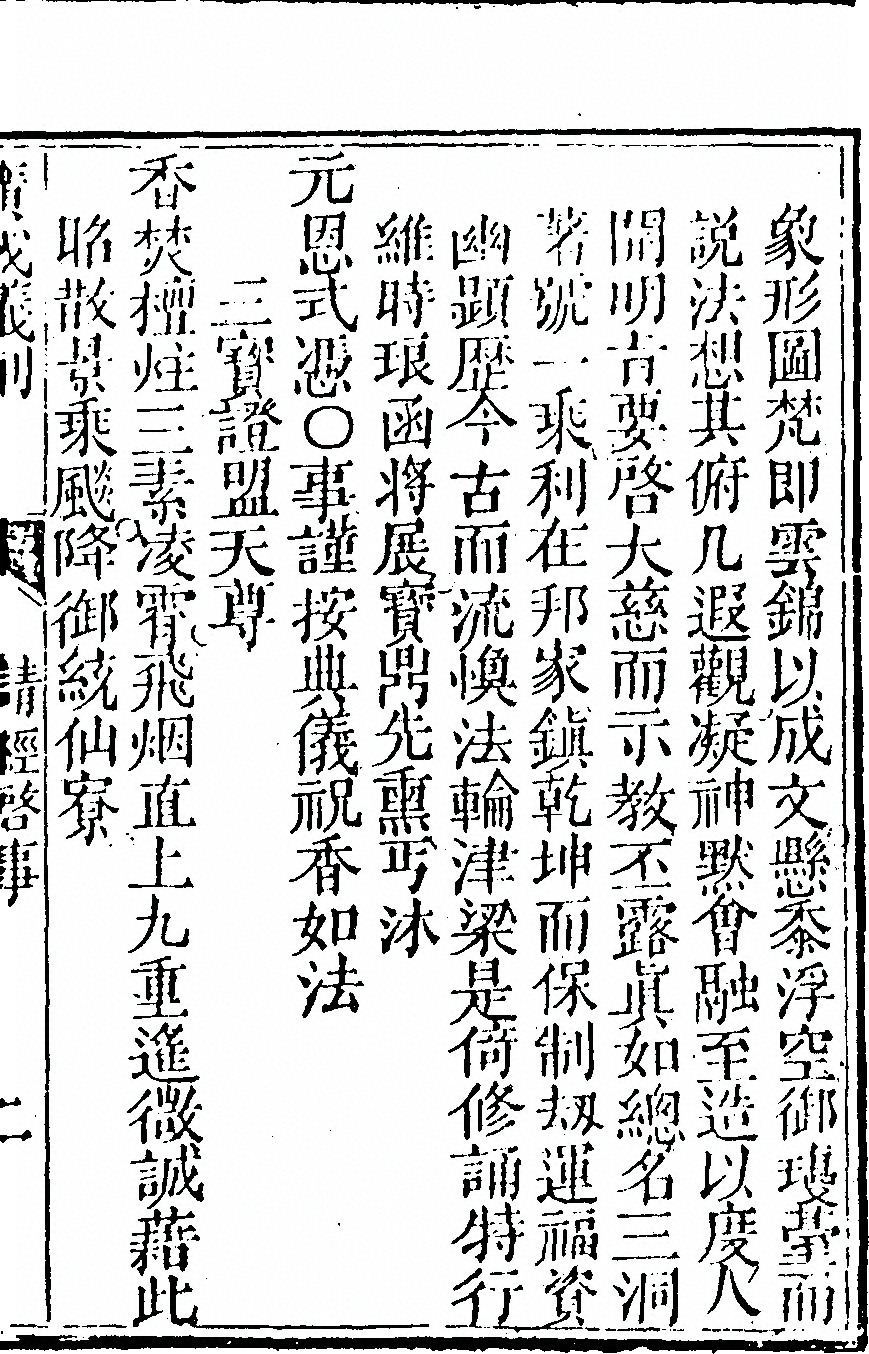 象形圖梵即雲錦以成文懸黍浮空御瓊臺而
説法想其俯几遐觀凝神默會融至造以度人
開明肯要啓大慈而示教丕露真如總名三洞
著號一乘利在邦家鎮乾坤而保制刼運福資
幽顯歷今古而流煥法輪津梁是倚修誦特行
維時琅函將展寶鼎先熏丐沐
元恩式憑〇事謹按典儀祝香如法
三寶證盟天尊
香焚檀炷三素凌霄飛烟直上九重遙微誠藉此
昭散景乘飈降御統仙寮
廣成儀制 請經啓事 二